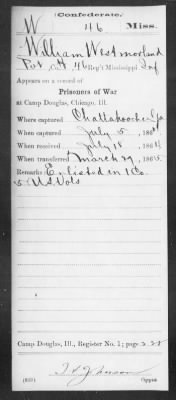 (Confederate.)
W 46 Miss.
William Westmorland
Pvt, Co. H, 46 Reg't Mississippi Inf
Appears on a record of
Prisoners of War
at Camp Douglas, Chicago, Ill.
Where captured Chattahoochee Ga
When captured July 5, 1864.
When received July 18, 1864
When transferred March 29, 1865.
Remarks: Enlisted in 1 Co.
5 U.S. Vols
Camp Douglas, Ill., Register No. 1; page
Johnson
Copyist.